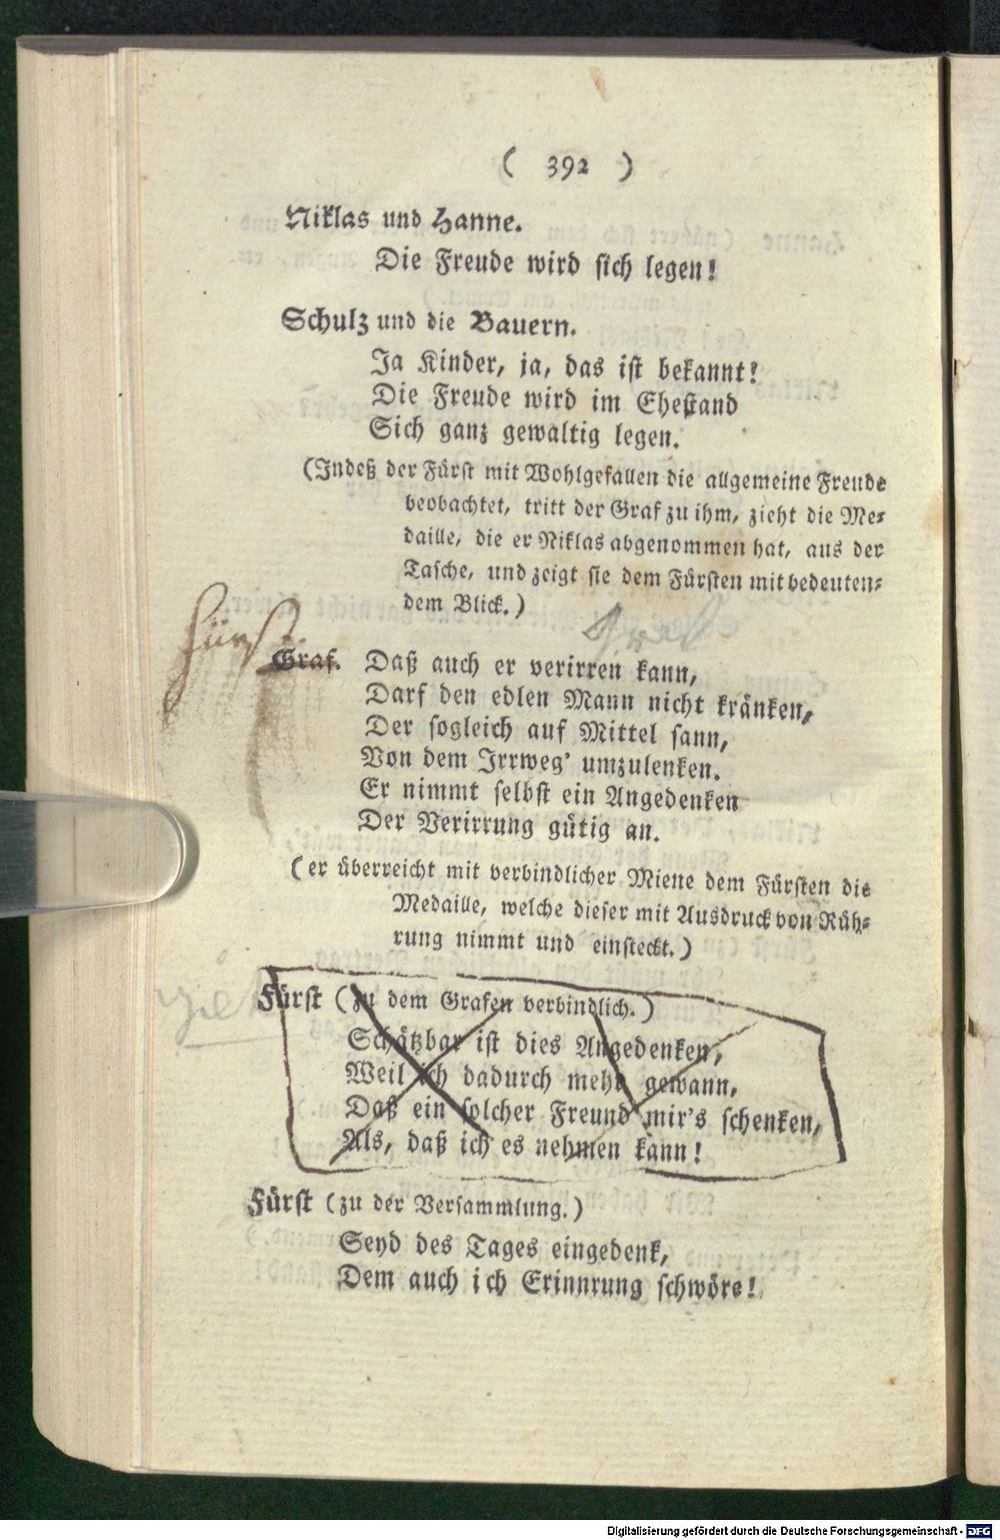 ( 392 )
Niklas und Hanne.
Die Freude wird sich legen!
Schulz und die Bauern.
Ja Kinder, ja, das ist bekannt!
Die Freude wird im Ehestand
Sich ganz gewaltig legen.
(Indeß der Fürst mit Wohlgefallen die allgemeine Freude
beobachtet, tritt der Graf zu ihm, zieht die Me-
daille, die er Niklas abgenommen hat, aus der
Tasche, und zeigt sie dem Fürsten mit bedeuten-
dem Blick.)
Fürst
Graf. Daß auch er verirren kann,
Darf den edlen Mann nicht kränken,
Der sogleich auf Mittel sann,
Von dem Irrweg' umzulenken.
Er nimmt selbst ein Angedenken
Der Verirrung gütig an.
(er überreicht mit verbindlicher Miene dem Fürsten die
Medaille, welche dieser mit Ausdruck von Rüh-
rung nimmt und einsteckt.)
Fürst (zu dem Grafen verbindlich.)
Schätzbar ist dies Angedenken,
Weil ich dadurch mehr gewann,
Daß ein solcher Freund mir's schenken,
Als, daß ich es nehmen kann!
Fürst (zu der Versammlung.)
Seyd des Tages eingedenk,
Dem auch ich Erinnrung schwöre!
Digitalisierung gefördert durch die Deutsche Forschungsgemeinschaft - DFG